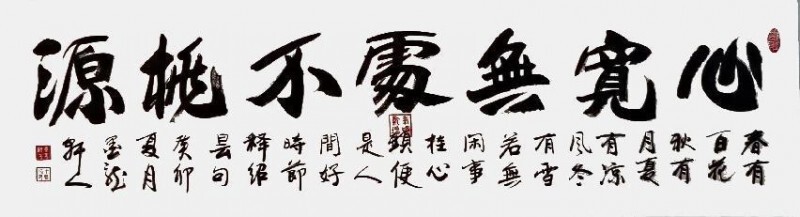 心寬無處不桃源
春有
百花
秋有
月夏
有凉
风冬
有雪
若無
闲事
挂心
頭便
是人
間好
時節
释绍
昙句
癸卯
夏月
墨龙
轩人